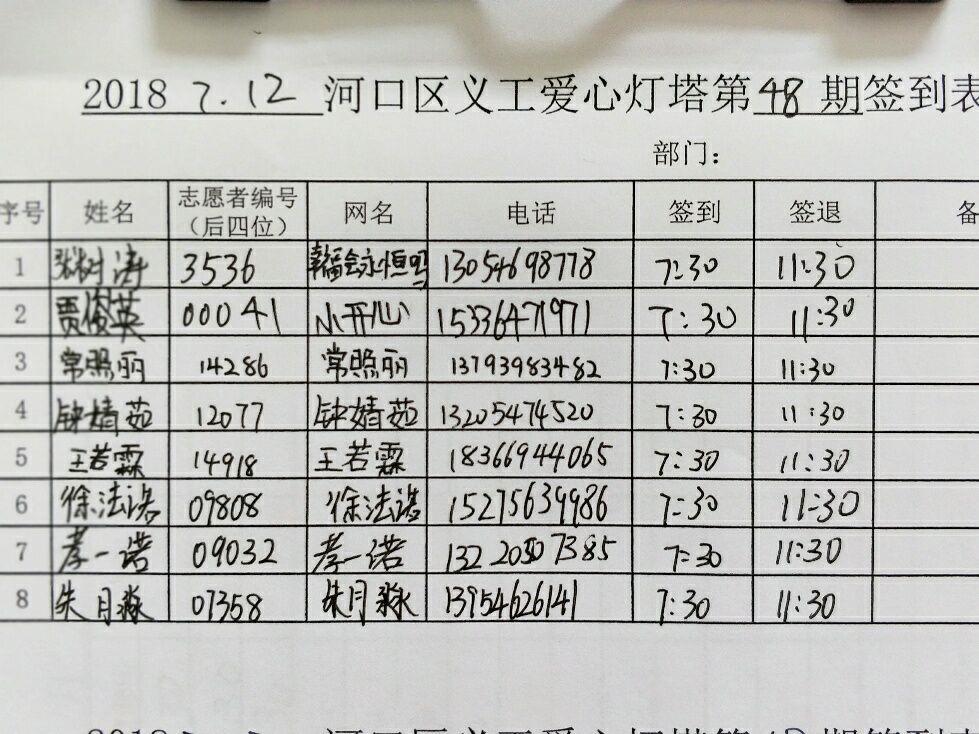 2018 7.12 河口区义工爱心灯塔第48期签到表
部门：
序号 姓名 志愿者编号（后四位） 网名 电话 签到 签退 备
1 张树涛 3536 幸福会永恒吗 13054698778 7:30 11:30
2 贾俊英 00041 小开心 15336471971 7:30 11:30
3 常照丽 14286 常照丽 13793983482 7:30 11:30
4 钟婧茹 12077 钟婧茹 13205474520 7:30 11:30
5 王若霖 14918 王若霖 18366944065 7:30 11:30
6 徐法诺 09808 徐法诺 15275639986 7:30 11:30
7 孝一诺 09032 孝一诺 13220507385 7:30 11:30
8 朱月淼 07358 朱月淼 13954626141 7:30 11:30